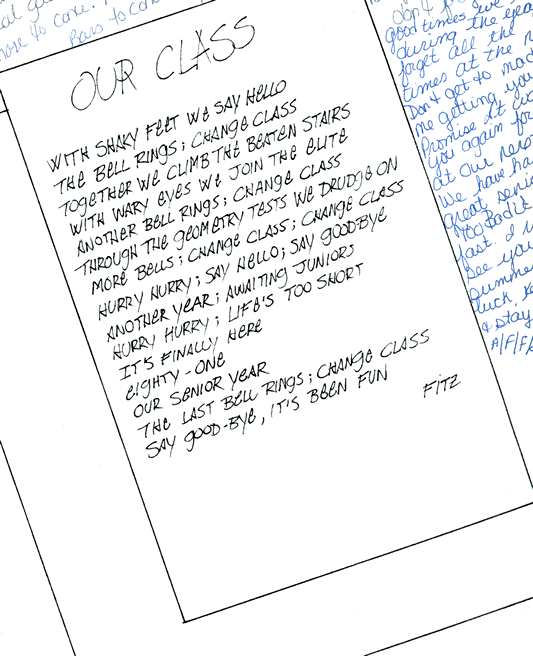 more to come.
Bars to
OUR CLASS
WITH SHAKY FEET WE SAY HELLO
THE BELL RINGS; CHANGE CLASS
TOGETHER WE CLIMB THE BEATEN STAIRS
WITH WARY EYES WE JOIN THE ELITE
ANOTHER BELL RINGS; CHANGE CLASS
THROUGH THE GEOMETRY TESTS WE DRUDGE ON
MORE BELLS; CHANGE CLASS; CHANGE CLASS
HURRY HURRY; SAY HELLO; SAY GOODBYE
ANOTHER YEAR; AWAITING JUNIORS
HURRY HURRY; LIFE'S TOO SHORT
IT'S FINALLY HERE
EIGHTY-ONE
OUR SENIOR YEAR
THE LAST BELL RINGS; CHANGE CLASS
SAY GOOD-BYE, IT'S BEEN FUN
FITZ
good times we
during the
forget all the
times at the
Don't get to
me getting you
Promise
you again for
at our
We have ha
great
Too Bad it
fast. I
see you
summer
luck.
& stay
A/F/F/